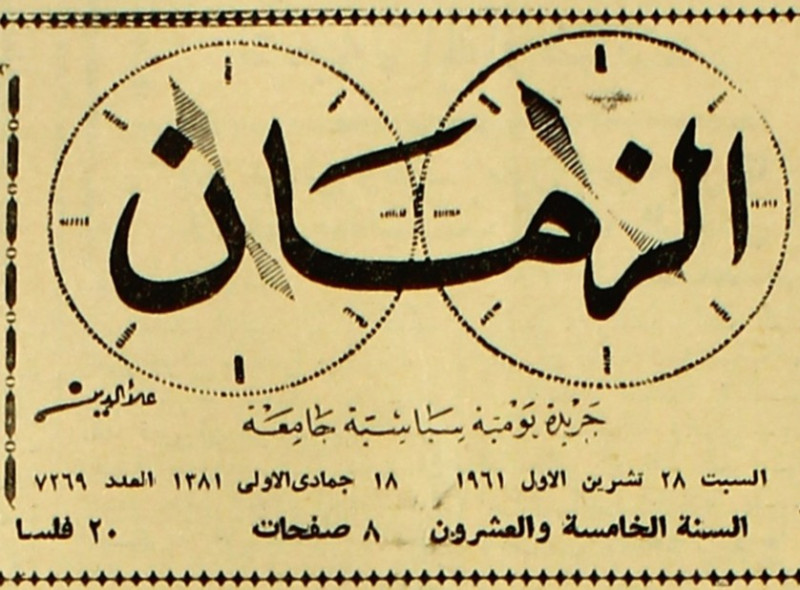 الزمان
علاء الدين
جريدة يومية سياسية جامعة
السبت ٢٨ تشرين الاول ١٩٦١ ١٨ جمادى الاولى ١٣٨١ العدد ٧٢٦٩
السنة الخامسة والعشرون ٨ صفحات ٢٠ فلسا